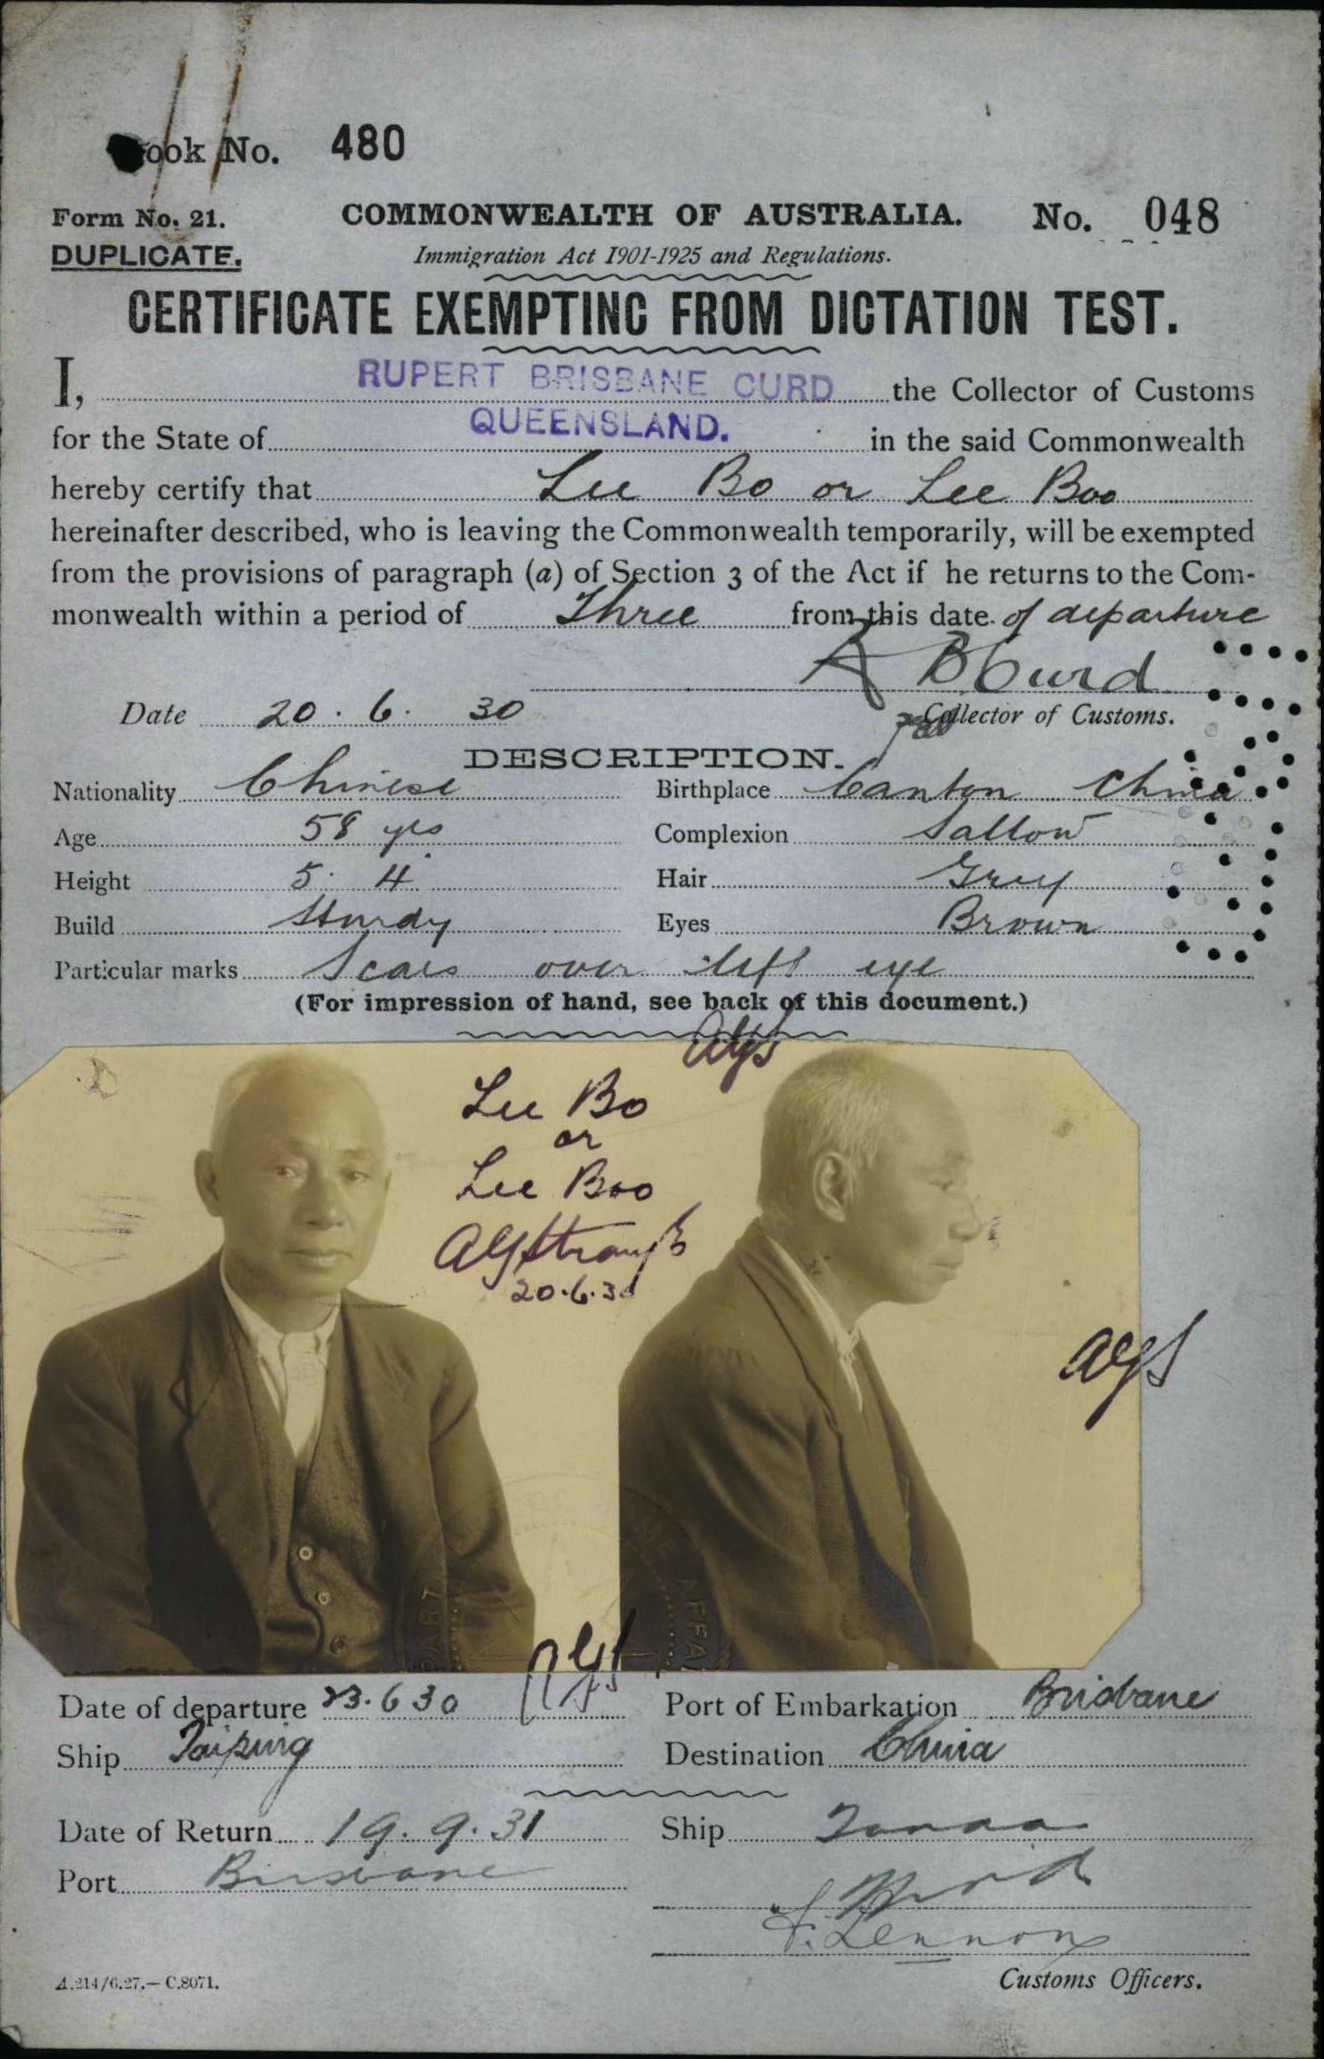 ook No. 480
Form No. 21. COMMONWEALTH OF AUSTRALIA. No. 048
DUPLICATE. Immigration Act 1901-1925 and Regulations.
CERTIFICATE EXEMPTING FROM DICTATION TEST.
I, RUPERT BRISBANE CURD the Collector of Customs
for the State of QUEENSLAND. in the said Commonwealth
hereby certify that Lee Bo or Lee Boo
hereinafter described, who is leaving the Commonwealth temporarily, will be exempted
from the provisions of paragraph (a) of Section 3 of the Act if he returns to the Com-
monwealth within a period of Three from this date of departure
R B Curd
Date 20. 6. 30 Collector of Customs.
DESCRIPTION.
Nationality Chinese Birthplace Canton China
Age 58 yrs Complexion Sallow
Height 5. 4 Hair Grey
Build Sturdy Eyes Brown
Particular marks Scars over left eye
(For impression of hand, see back of this document.)
AGS
Lee Bo
or
Lee Boo
20.6.30
AGS
AGS
Date of departure 23.6 30 Port of Embarkation Brisbane
Ship Taiping Destination China
Date of Return 19. 9. 31 Ship Tanda
Port Brisbane
Lennon
Customs Officers.
A.214/6.27.—C.8071.